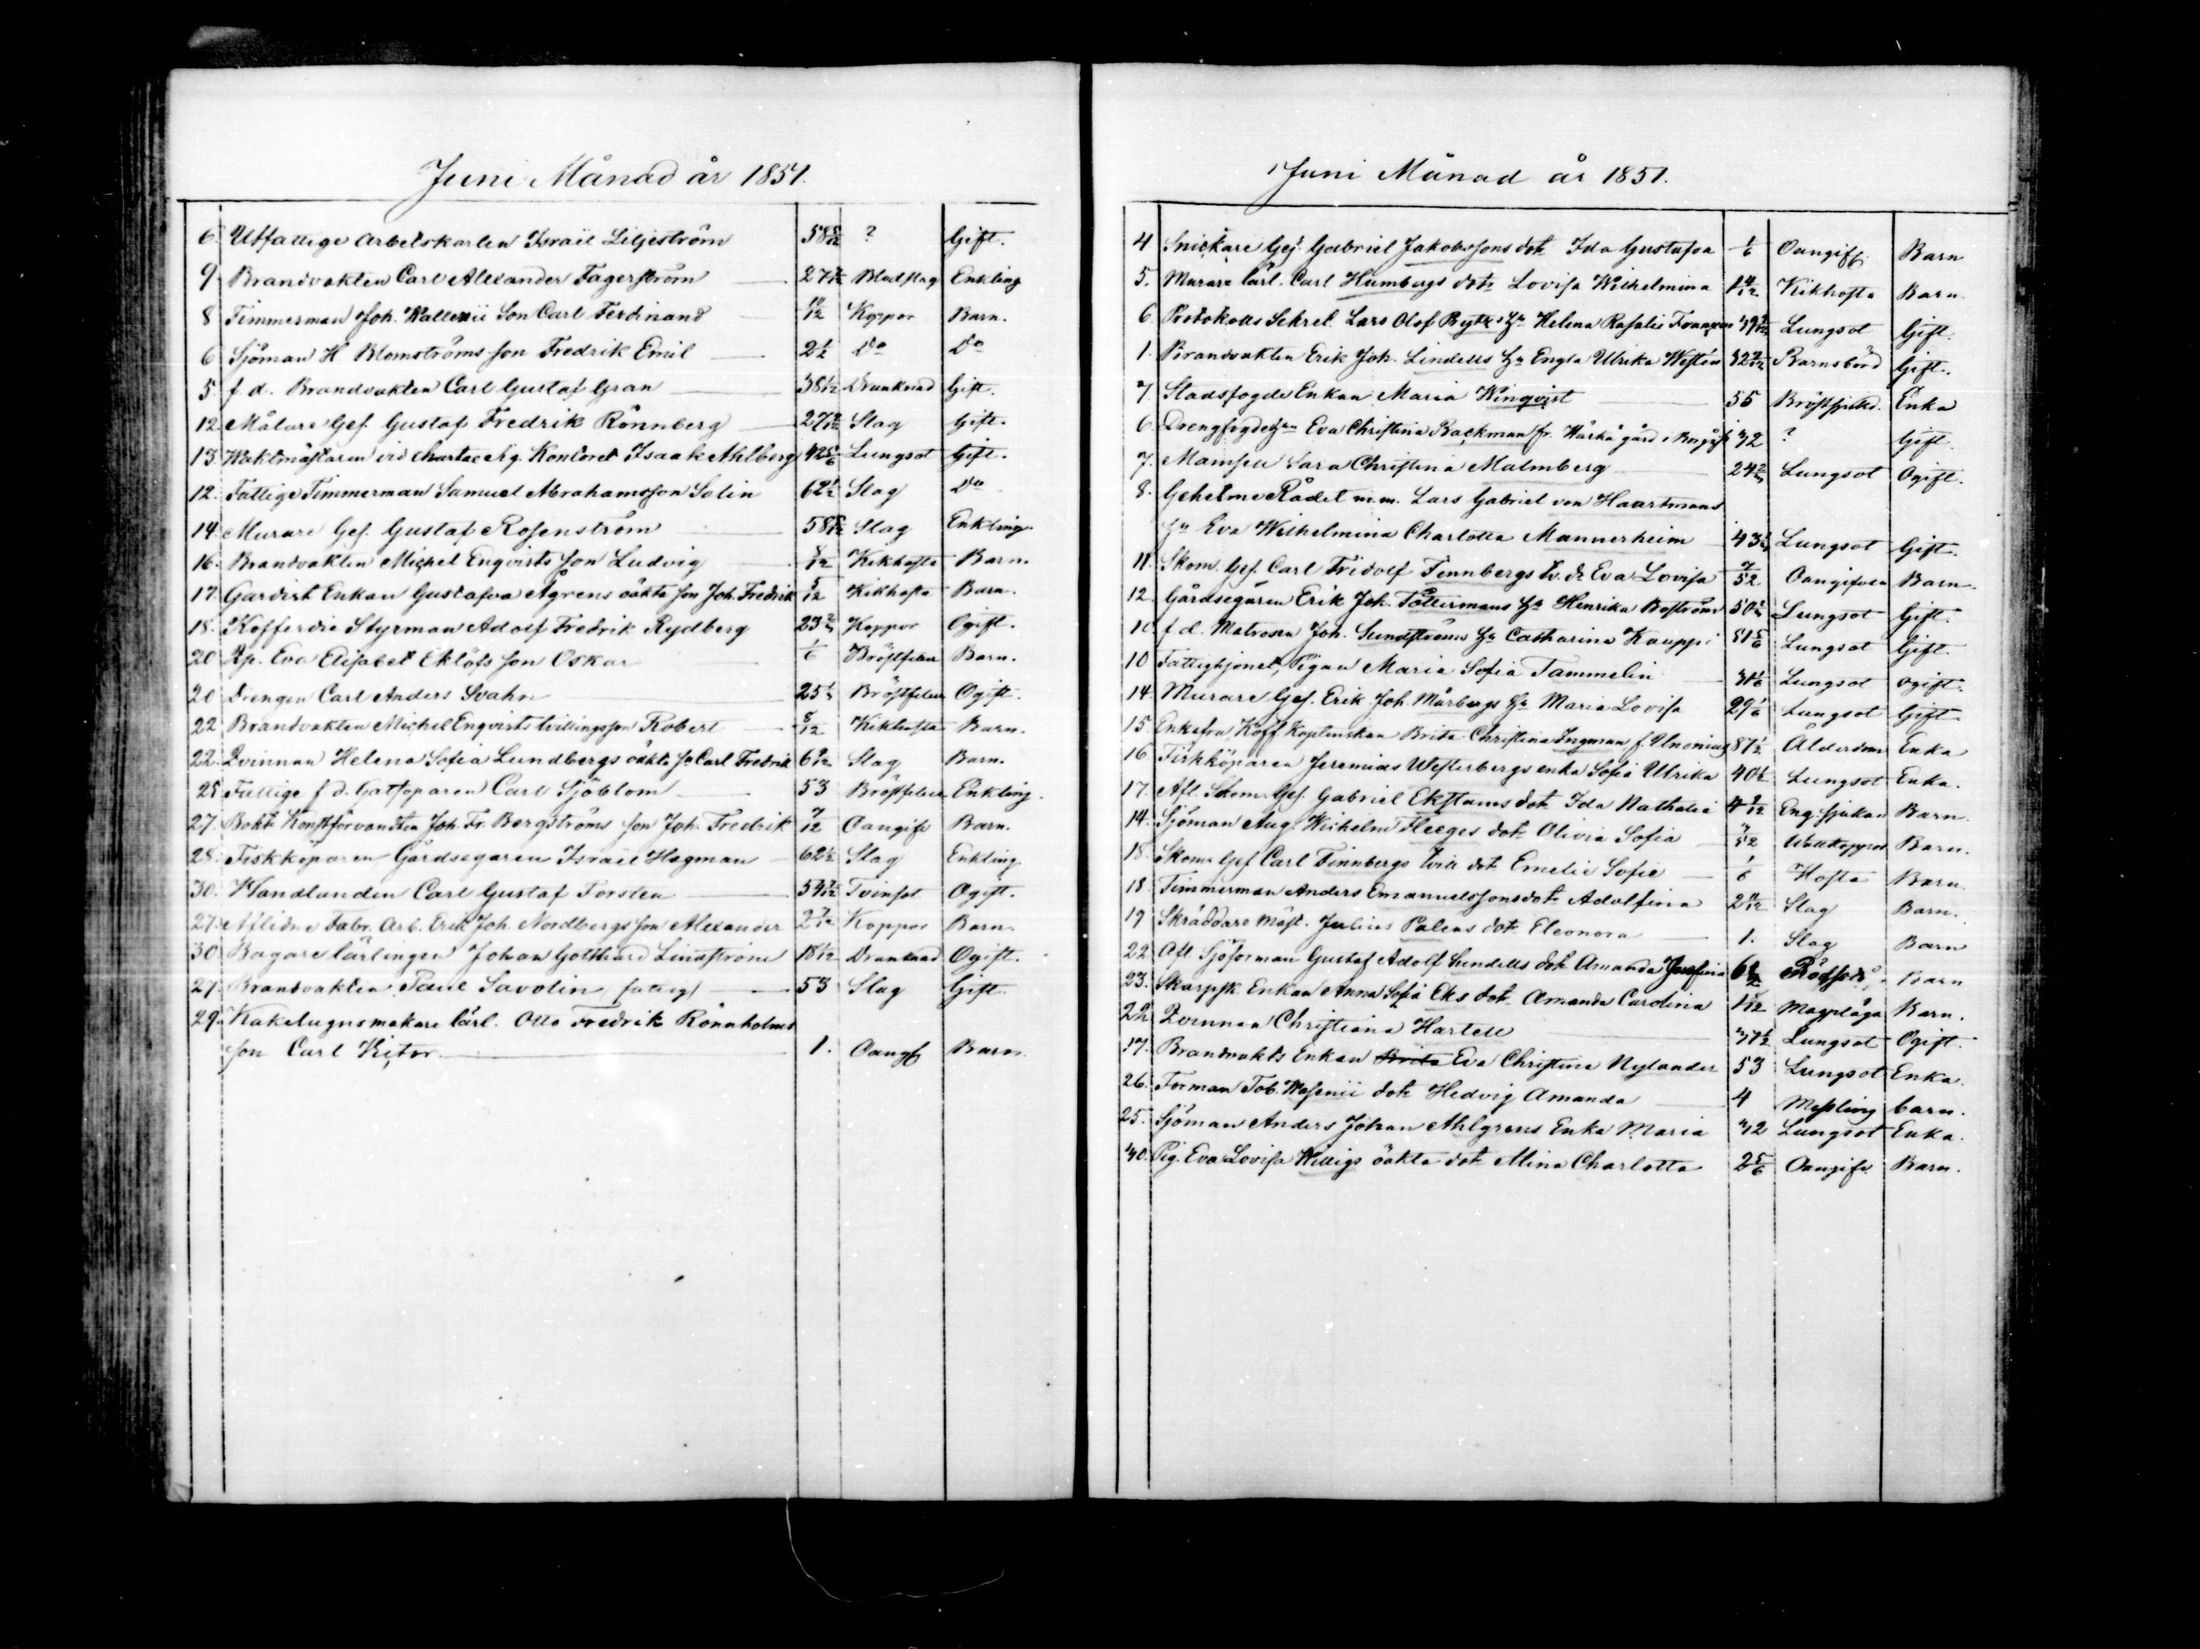 Juni Månad år 1851.
6. Utfattige Arbetskarlen Israel Liljeström 58 8/12 ? Gift.
9. Brandvakten Carl Alexander Fagerström 27 Blodslag Enkling
8 Timmerman Joh. Wallenii Son Carl Ferdinand 10/12 Koppor Barn.
6 Sjöman H Blomströms son Fredrik Emil 2 1/2 Do Do
5 f. d. Brandvakten Carl Gustaf Gran 38 1/12 Drunknad Gift.
12 Målare Gef. Gustaf Fredrik Rönnberg 27 Slag Gift.
13. Waktmästaren vid Chartæ Sig. Kontoret Isaak Ahlberg 42 5/6 Lungsot Gift.
12. Fattige Timmerman Samuel Abrahamsson Solin 62 1/2 Slag Do
14. Murare Gef. Gustaf Rosenström 58 Slag Enkling.
16. Brandvakten Michel Enqvists son Ludvig 5/12 Kikhosta Barn.
17. Gardist Enkan Gustafva Ågrens oäkta son Joh. Fredrik 5/12 Kikhosta Barn.
18. Kofferdie Styrman Adolf Fredrik Rydberg 23 Koppor Ogift.
20 Pp. Eva Elisabet Eklöfs son Oskar 1/6 Bröstfeber Barn.
20 Drengen Carl Anders Svahn 25 Bröstfeber Ogift.
22 Brandvakten Michel Enqvists tvillingsson Robert 5/12 Kikhosta Barn.
22. Qvinnan Helena Sofia Lundbergs oäkta so Carl Fredrik 6 Slag Barn.
25 Fattige f. d. Gatsoparen Carl Sjöblom 53 Bröstfeber Enkling.
27. Bokt. Konstförvandten Joh. Fr. Bergströms son Joh. Fredrik 7/12 Oangifv Barn.
28. Fiskköparen Gårdsegaren Israel Hagman 62 1/2 Slag Enkling.
30. Handlanden Carl Gustaf Forsten 54 Tvinsot Ogift.
27. Aflidne Fabr. Arb. Erik Joh. Nordbergs son Alexander 2 7/12 Koppor Barn.
30 Bagare lärlingen Johan Gotthard Lindström 18 1/12 Drunknad Ogift.
27. Brandvakten Paul Savolin (fattig) 53 Slag Gift.
29. Kakelugnsmakare lärl. Otto Fredrik Rönnholms
son Carl Victor 1. Oangf Barn.
Juni Månad år 1851.
4 Snickare Gef. Gabriel Jakobssons dotr Ida Gustafva 1/6 Oangifv. Barn
5. Murare lärl. Carl Humbergs dotr Lovisa Wilhelmina 1 4/12 Kikhosta Barn.
6. Protokolls Sekret. Lars Olof Byttes Hu Helena Rosalie Franzen 39 Lungsot Gift.
1. Brandvakten Erik Joh. Lindells Hu Engla Ulrika Westén 32 Barnsbörd Gift.
7 Stadsfogde Enkan Maria Winqvist 55 Bröstsjukd. Enka
6. Drengfogde Hun Eva Christina Backman fr. gård i Borgå 32 ? Gift.
7. Mamsell Sara Christina Malmberg 24 Lungsot Ogift.
8. Geheime Rådet m.m. Lars Gabriel von Haartmans
Hu Eva Wilhelmina Charlotta Mannerheim 43 Lungsot Gift.
11. Skom. Gef. Carl Fridolf Finnbergs tv. dr Eva Lovisa 7/52 Oangifven Barn.
12. Gårdsegaren Erik Joh. Töttermans Hu Henrika Boström 50 Lungsot Gift.
10 f. d. Matrosen Joh. Sundströms Hu Catharina Kauppi 51 5/6 Lungsot Gift.
10 Fattighjonet, Pigan Maria Sofia Tammelin 31 1/6 Lungsot ogift.
14. Murare Gef. Erik Joh. Mårbergs Hu Maria Lovisa 29 1/6 Lungsot Gift.
15. Enkefru Koff. Kaptenskan Brita Christina Ingman f. Unonius 87 1/2 Ålderdom Enka
16 Fiskköparen Jeremias Westerbergs enka Sofia Ulrika 40 Lungsot Enka.
17. Afl. Skom. Gef. Gabriel Ekstams dotr Ida Nathalia 4 Eng. sjukan Barn.
14. Sjöman Aug. Wilhelm Fleeges dotr Olivia Sofia /52 Wattkoppor Barn.
18. Skom. Gef. Carl Finnbergs tvill dot Emelie Sofie 1/6 Hosta Barn.
18. Timmerman Anders Emanuelssons dotr Adolfina 2 11/12 Slag Barn.
19 Skräddare Mäst. Julius Palens dotr Eleonora 1. Slag Barn
22 Afl. Sjöforman Gustaf Adolf Sundells dotr Amanda Josefina 6 Rödsot Barn
23. Skarpsk. Enkan Anna Sofia Eks dotr Amanda Carolina 1 Magplåga Barn.
22 Qvinnan Christiana Hartell 37 1/2 Lungsot Ogift.
17. Brandvakts Enkan Brita Eva Christina Nylander 53 Lungsot Enka.
26. Forman Tob. Wasenii dotr Hedvig Amanda 4 Messling barn.
25. Sjöman Anders Johan Ahlgrens Enka Maria 32 Lungsot Enka.
30. Pig. Eva Lovisa Willigs oäkta dotr Mina Charlotta 2 5/6 Oangifv. Barn.